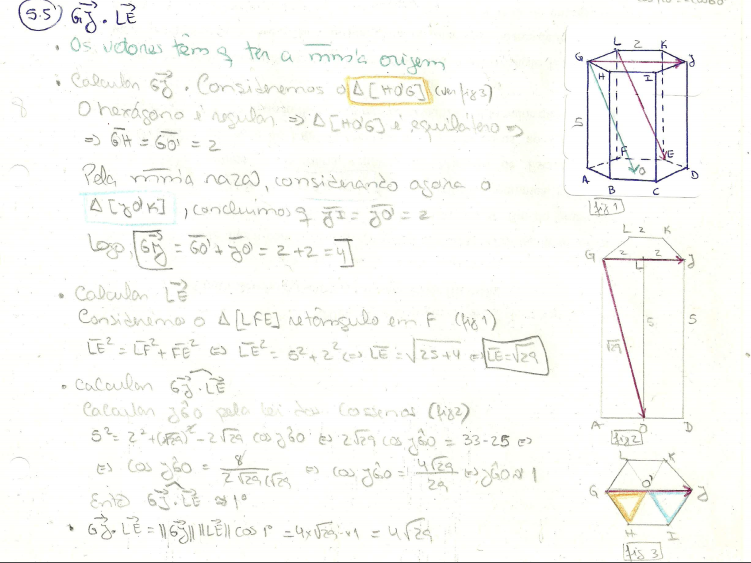 5.5) GJ⃗ . LE⃗
• Os vetores têm q ter a mesma origem
• Calcular GJ⃗ . Consideremos o Δ[HO'G] (ver fig 3)
O hexágono é regular ⇒ Δ[HO'G] é equilátero ⇒
⇒ GH = GO' = 2
Pela mesma razão, considerando agora o
Δ[JO'K], concluimos q JI = JO' = 2
Logo, GJ⃗ = GO' + JO' = 2+2 = 4
• Calcular LE⃗
Consideremos o Δ[LFE] retângulo em F (fig 1)
LE² = LF² + FE² ⇔ LE² = 5² + 2² ⇔ LE = √25+4 ⇔ LE = √29
• Calcular GJ⃗ . LE⃗
Calcular JĜO pela lei dos cossenos (fig 2)
5² = 2² + (√29)² - 2√29 cos JĜO ⇔ 2√29 cos JĜO = 33-25 ⇔
⇔ cos JĜO = 8 / 2√29 ⇔ cos JĜO = 4√29 / 29 ⇔ JĜO ≈ 1
Então GJ⃗ . LE⃗ ≈ 1°
• GJ⃗ . LE⃗ = ||GJ⃗|| ||LE⃗|| cos 1° = 4×√29×1 = 4√29
L 2 K
G H I J
5
F E
O
A B C D
fig 1
L 2 K
G 2 L 2 J
√29 5 5
A O D
fig 2
L K
G O' J
H I
fig 3